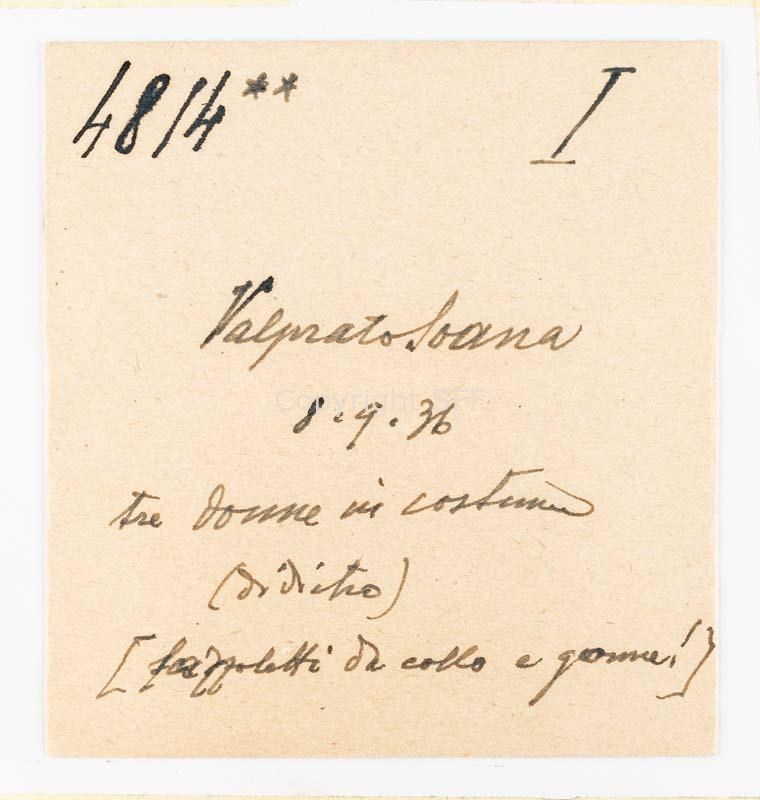 4814** I
Valprato Soana
Copyright SFF
8.9.36
tre donne in costume
(di dietro)
[fazzoletti da collo e gonne!]